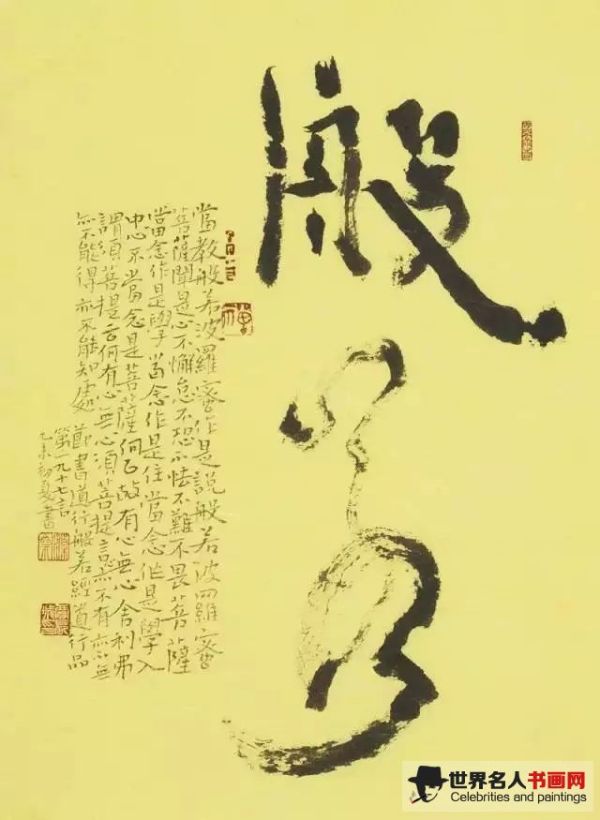 般若
當教般若波羅蜜作是說般若波羅蜜
菩薩聞是心不懈怠不恐不怯不難不畏菩薩
當念作是學當念作是住當念作是學入
中心不當念是菩薩何以故有心無心舍利弗
謂須菩提云何有心無心須菩提言亦不有亦無
亦不能得亦不能知處 節書道行般若經道行品
第一九十七言
乙未初夏書
世界名人书画网
Celebrities and paintings